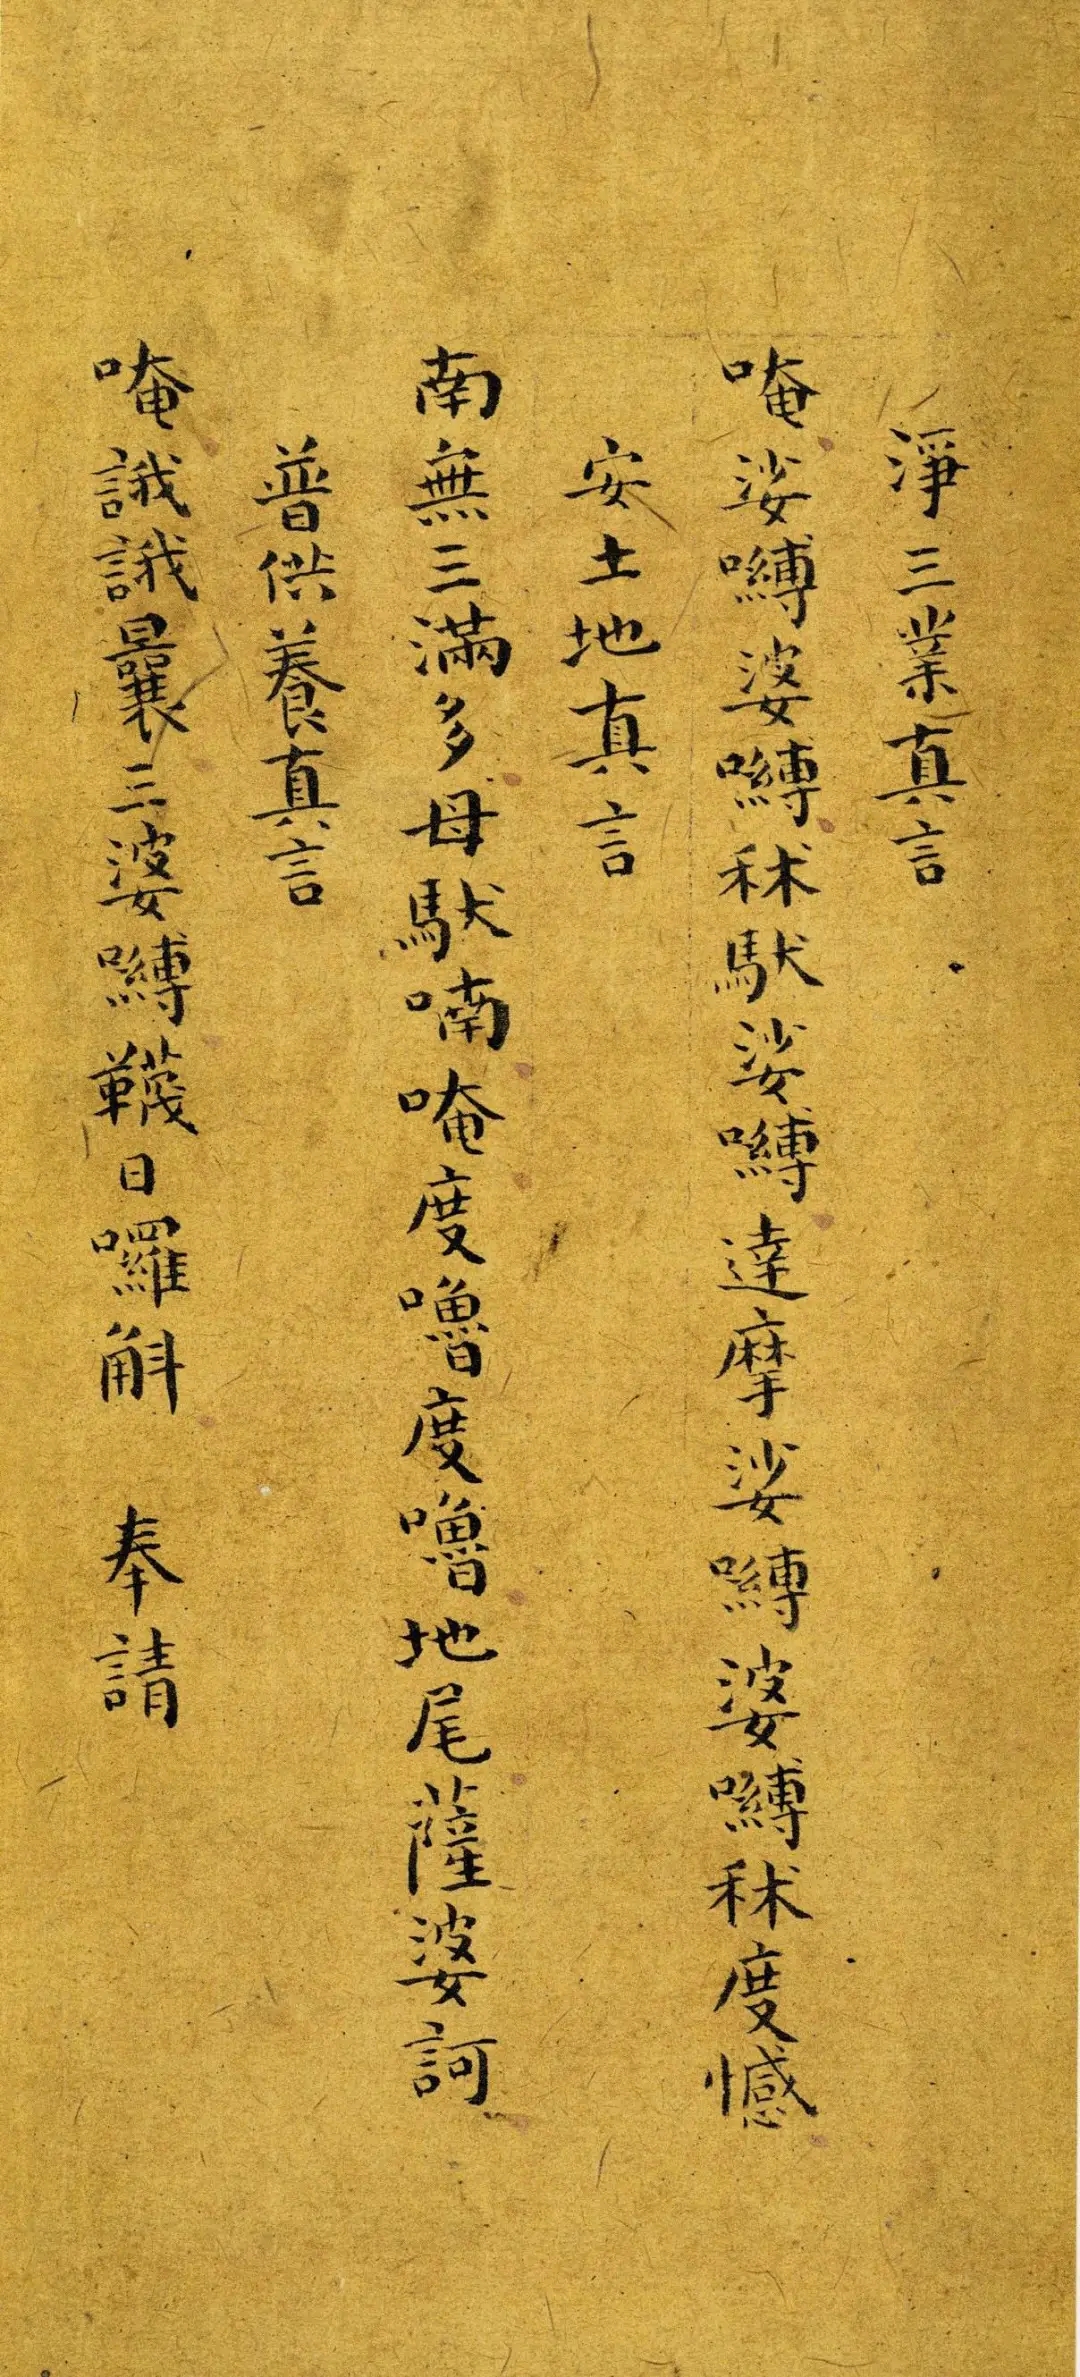 淨三業真言
唵娑嚩婆嚩秫馱娑嚩達摩娑嚩婆嚩秫度憾
安土地真言
南無三滿多母馱喃唵度嚕度嚕地尾薩婆訶
普供養真言
唵誐誐曩三婆嚩韈日囉斛 奉請